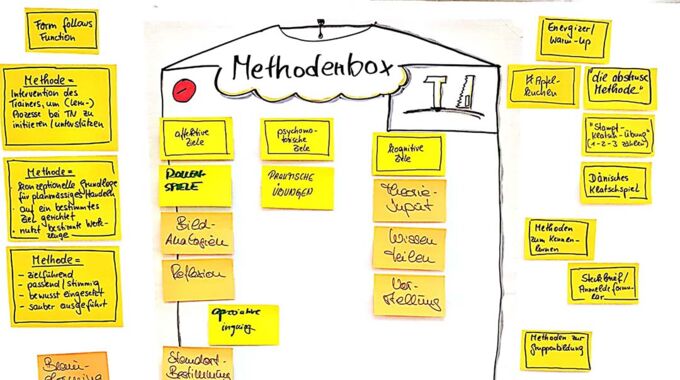 Form follows
Function
Methode =
Intervention des
Trainers, um (Lern-)
Prozesse bei TN zu
initiieren/unterstützen
Methode =
· konzeptionelle Grundlage
für planmässiges Handeln
· auf ein bestimmtes
Ziel gerichtet
· nutzt bestimmte Werk-
zeuge
Methode =
- zielführend
- passend/stimmig
- bewusst eingesetzt
- sauber ausgeführt
Methodenbox
affektive
Ziele
psychomo-
torische
Ziele
kognitive
Ziele
ROLLEN-
SPIELE
PRAKTISCHE
ÜBUNGEN
Theorie-
Input
Bild-
Analogien
Wissen
teilen
Reflexion
Vor-
stellung
Standort-
Bestimmung
Energizer/
Warm-up
"die abstruse
Methode"
"Stampf-
Klatsch-Übung"
(1-2-3 zählen)
Dänisches
Klatschspiel
Methoden
zum Kennen-
lernen
Steckbrief/
Anmeldeformu-
lar
Methoden zur
Gruppenbildung